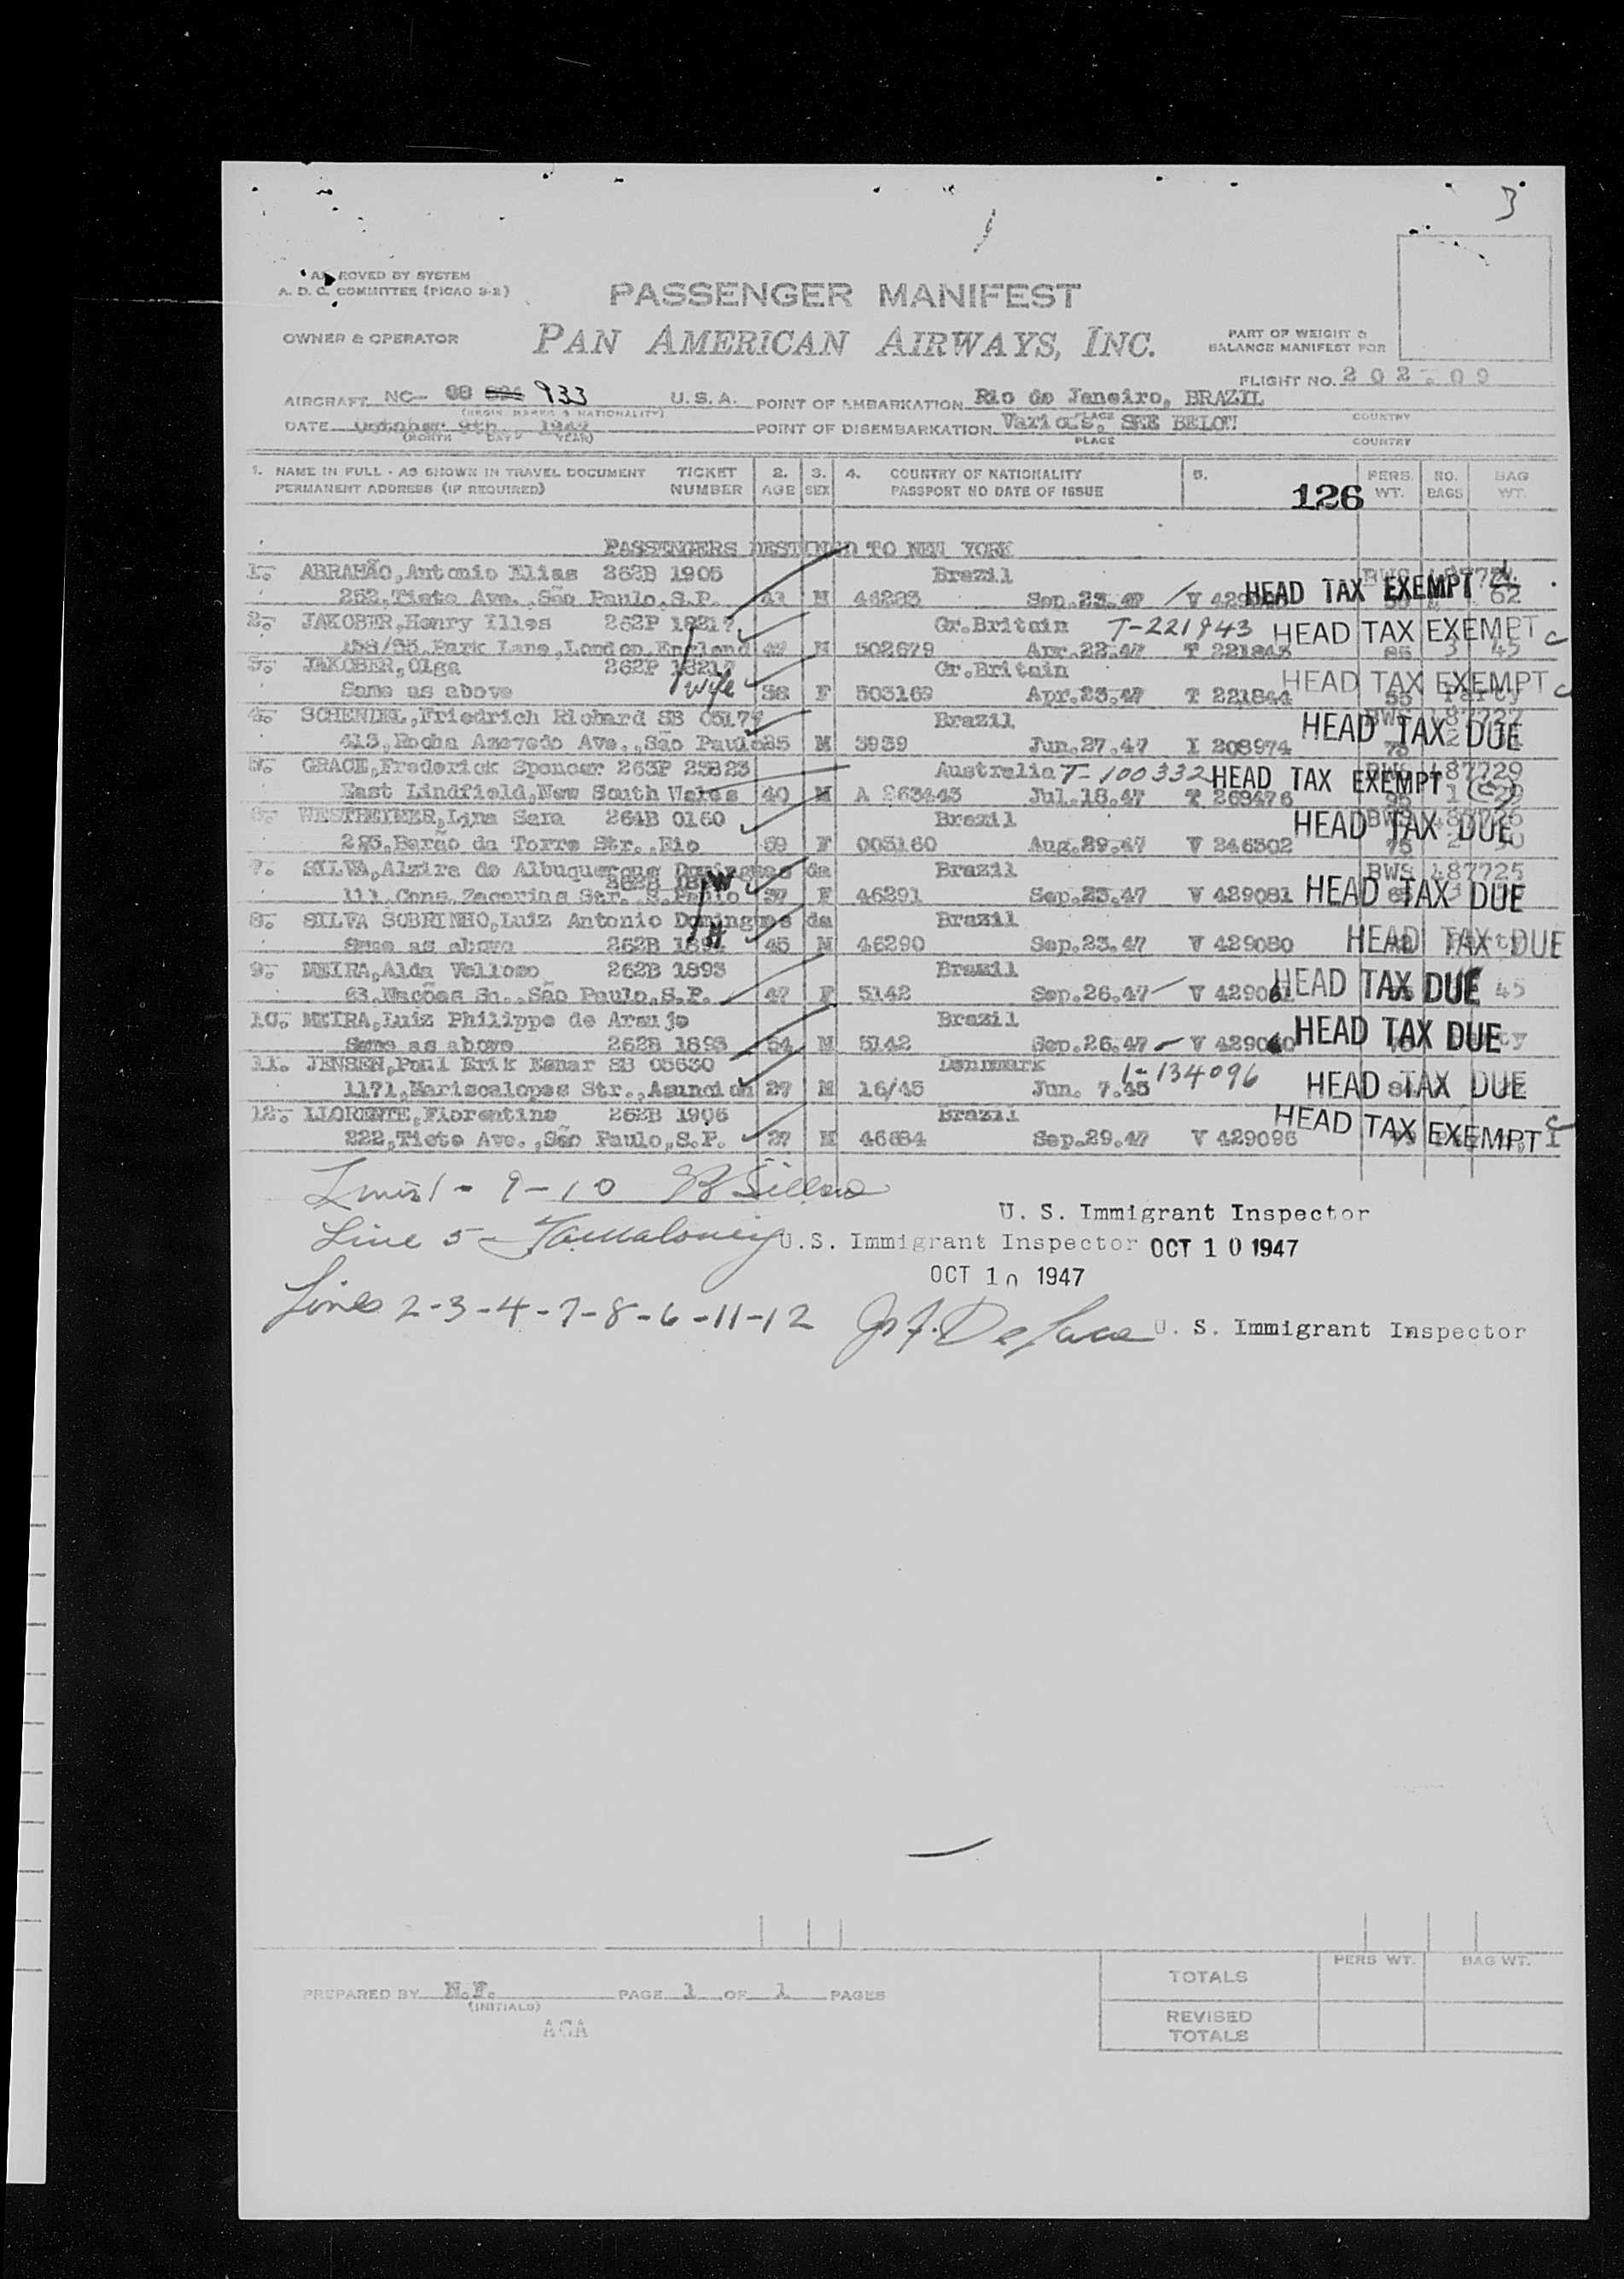 3
APPROVED BY SYSTEM
A. D. C. COMMITTEE (PICAO S-2)
PASSENGER MANIFEST
OWNER & OPERATOR
PAN AMERICAN AIRWAYS, INC.
PART OF WEIGHT &
BALANCE MANIFEST FOR
FLIGHT NO. 202-09
AIRCRAFT NC- 88 933 U.S.A. POINT OF EMBARKATION Rio de Janeiro, BRAZIL
(REGIS. MARKS & NATIONALITY) PLACE COUNTRY
DATE October 9th, 1947 POINT OF DISEMBARKATION Various, SEE BELOW
(MONTH DAY YEAR) PLACE COUNTRY
1. NAME IN FULL - AS SHOWN IN TRAVEL DOCUMENT TICKET 2. 3. 4. COUNTRY OF NATIONALITY 5. PERS. NO. BAG
PERMANENT ADDRESS (IF REQUIRED) NUMBER AGE SEX PASSPORT NO DATE OF ISSUE 126 WT. BAGS WT.
PASSENGERS DESTINED TO NEW YORK
1. ABRAHÃO, Antonio Elias 262B 1905 Brazil BWS
252, Tiete Ave., São Paulo, S.P. 43 M 46283 Sep.23.47 HEAD TAX EXEMPT 62
2. JAKOBER, Henry Illes 262P 18217 Gr.Britain T-221843 HEAD TAX EXEMPT C
158/55, Park Lane, London, England 47 M 502679 Apr.22.47 T 221843 85 3 45
3. JAKOBER, Olga 262P 18217 Gr.Britain HEAD TAX EXEMPT C
Same as above wife 38 F 503169 Apr.23.47 T 221844 55 Party
4. SCHENDEL, Friedrich Richard SB 05177 Brazil BWS 487727
413, Rocha Azevedo Ave., São Paulo 25 M 3939 Jun.27.47 I 208974 HEAD TAX DUE
5. GRACE, Frederick Spencer 263P 23823 Australia T-100332 BWS 487729
East Lindfield, New South Wales 40 M A 263443 Jul.18.47 T 263476 HEAD TAX EXEMPT
6. WESTHEIMER, Lina Sara 264B 0160 Brazil
285, Barão da Torre Str., Rio 59 F 003160 Aug.29.47 V 246302 HEAD TAX DUE
7. SILVA, Alzira de Albuquerque Domingues da Brazil BWS 487725
111, Cons. Zacarias Str. S.Paulo W 37 F 46291 Sep.23.47 V 429081 HEAD TAX DUE
8. SILVA SOBRINHO, Luiz Antonio Domingues da Brazil
Same as above 262B 1894 H 45 M 46290 Sep.23.47 V 429080 HEAD TAX DUE
9. MEIRA, Alda Velloso 262B 1893 Brazil
63, Nações Sq., São Paulo, S.P. 47 F 5142 Sep.26.47 V 429061 HEAD TAX DUE 45
10. MEIRA, Luiz Philippe de Araujo Brazil
Same as above 262B 1893 54 M 5142 Sep.26.47 V 429060 HEAD TAX DUE
11. JENSEN, Poul Erik Esmar SB 05630 Denmark I-134096
1171, Mariscalopes Str., Asuncion 27 M 16/45 Jun. 7.45 HEAD TAX DUE
12. LLORENTE, Florentino 262B 1906 Brazil
222, Tiete Ave., São Paulo, S.P. 27 M 46684 Sep.29.47 V 429096 HEAD TAX EXEMPT C
Lines 1 - 9 - 10
U. S. Immigrant Inspector
Line 5 - U.S. Immigrant Inspector OCT 10 1947
OCT 10 1947
Lines 2-3-4-7-8-6-11-12 U. S. Immigrant Inspector
PERS WT. BAG WT.
TOTALS
PREPARED BY N.F. PAGE 1 OF 1 PAGES
(INITIALS)
REVISED
TOTALS
ACA